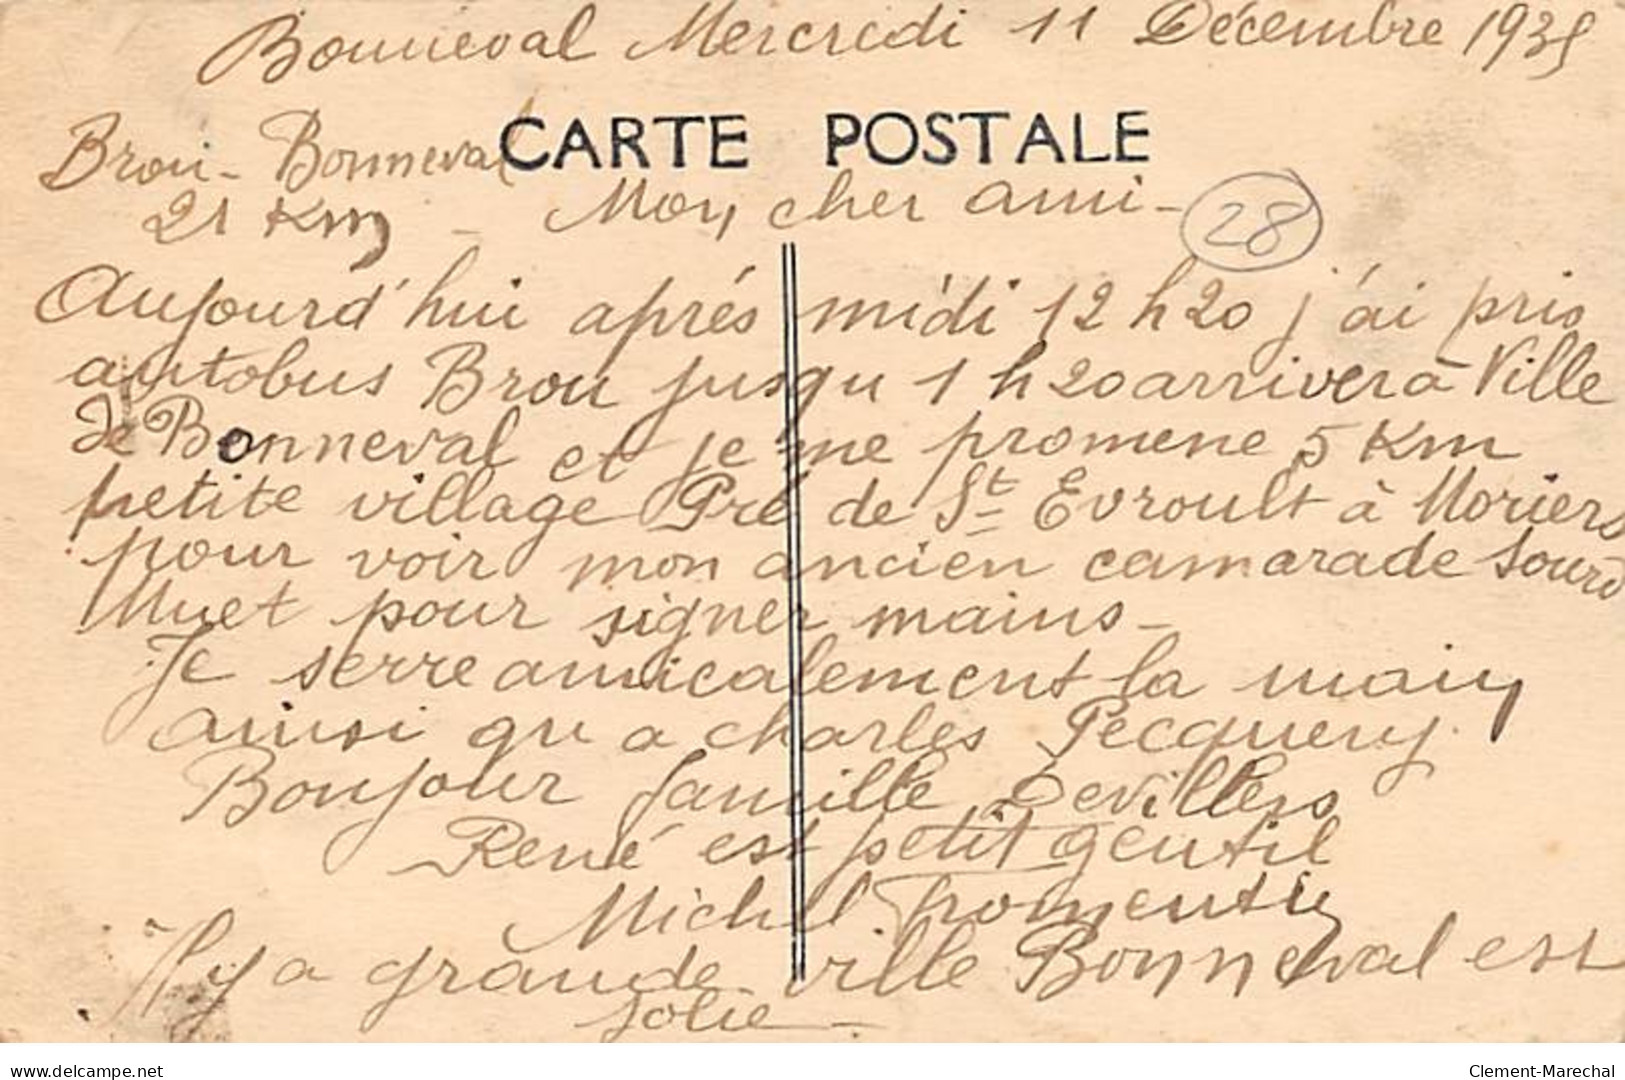 Bonneval Mercredi 11 Décembre 1935
CARTE POSTALE
Brou - Bonneval
21 Km - Mon cher ami -
28
Aujourd'hui aprés midi 12 h 20 j'ai pris
autobus Brou jusqu 1 h 20 arriver à Ville
de Bonneval et je me promene 5 Km
petite village Pré de St Evroult à Moriers
pour voir mon ancien camarade Sourd
Muet pour signer mains -
Je serre amicalement la main
ainsi qu a charles Pecquery.
Bonjour famille Devillers
René est petit gentil
Michel Fromentin
Il y a grande ville Bonneval est
jolie -
delcampe.net
Clement-Marechal